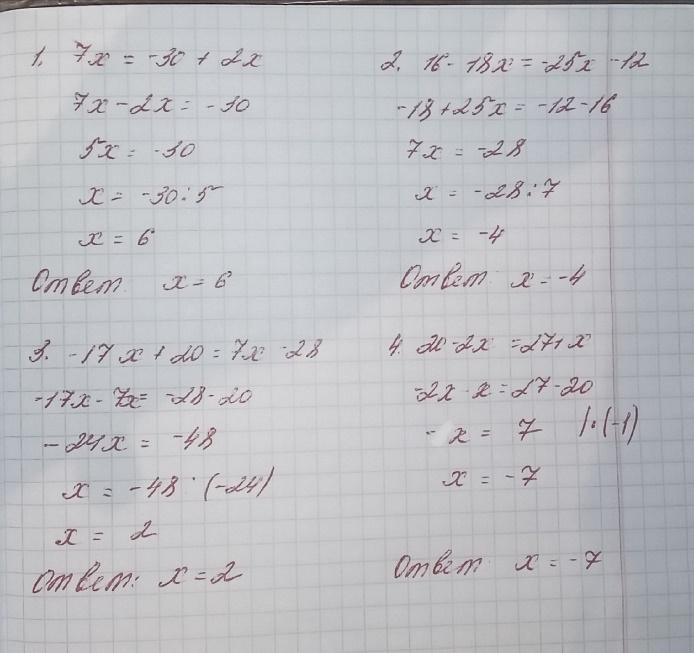 1. 7x = -30 + 2x
7x - 2x = -30
5x = -30
x = -30 : 5
x = 6
Ответ: x = 6
2. 16 - 18x = -25x - 12
-18 + 25x = -12 - 16
7x = -28
x = -28 : 7
x = -4
Ответ: x = -4
3. -17x + 20 = 7x - 28
-17x - 7x = -28 - 20
-24x = -48
x = -48 : (-24)
x = 2
Ответ: x = 2
4. 20 - 2x = 27 + x
-2x - x = 27 - 20
- x = 7 | · (-1)
x = -7
Ответ: x = -7